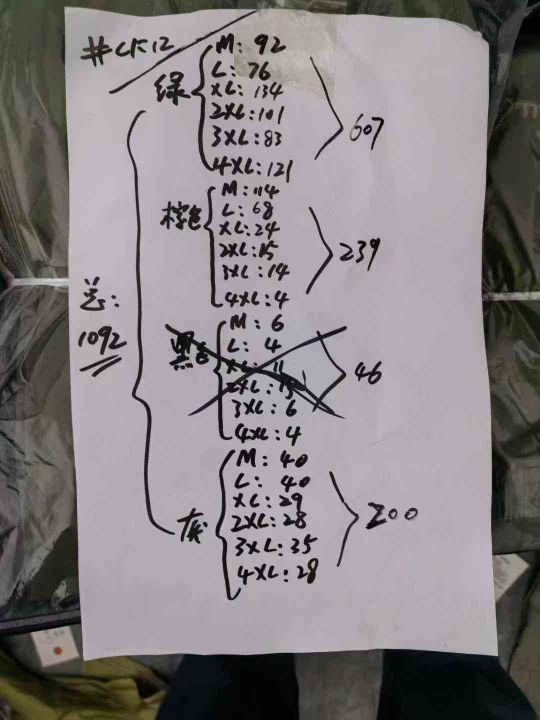 #CK12
绿
M: 92
L: 76
XL: 134
2XL: 101
3XL: 83
4XL: 121
607
棕色
M: 114
L: 68
XL: 24
2XL: 15
3XL: 14
4XL: 4
239
总:
1092
黑色
M: 6
L: 4
XL: 11
2XL: 15
3XL: 6
4XL: 4
46
灰
M: 40
L: 40
XL: 29
2XL: 28
3XL: 35
4XL: 28
200